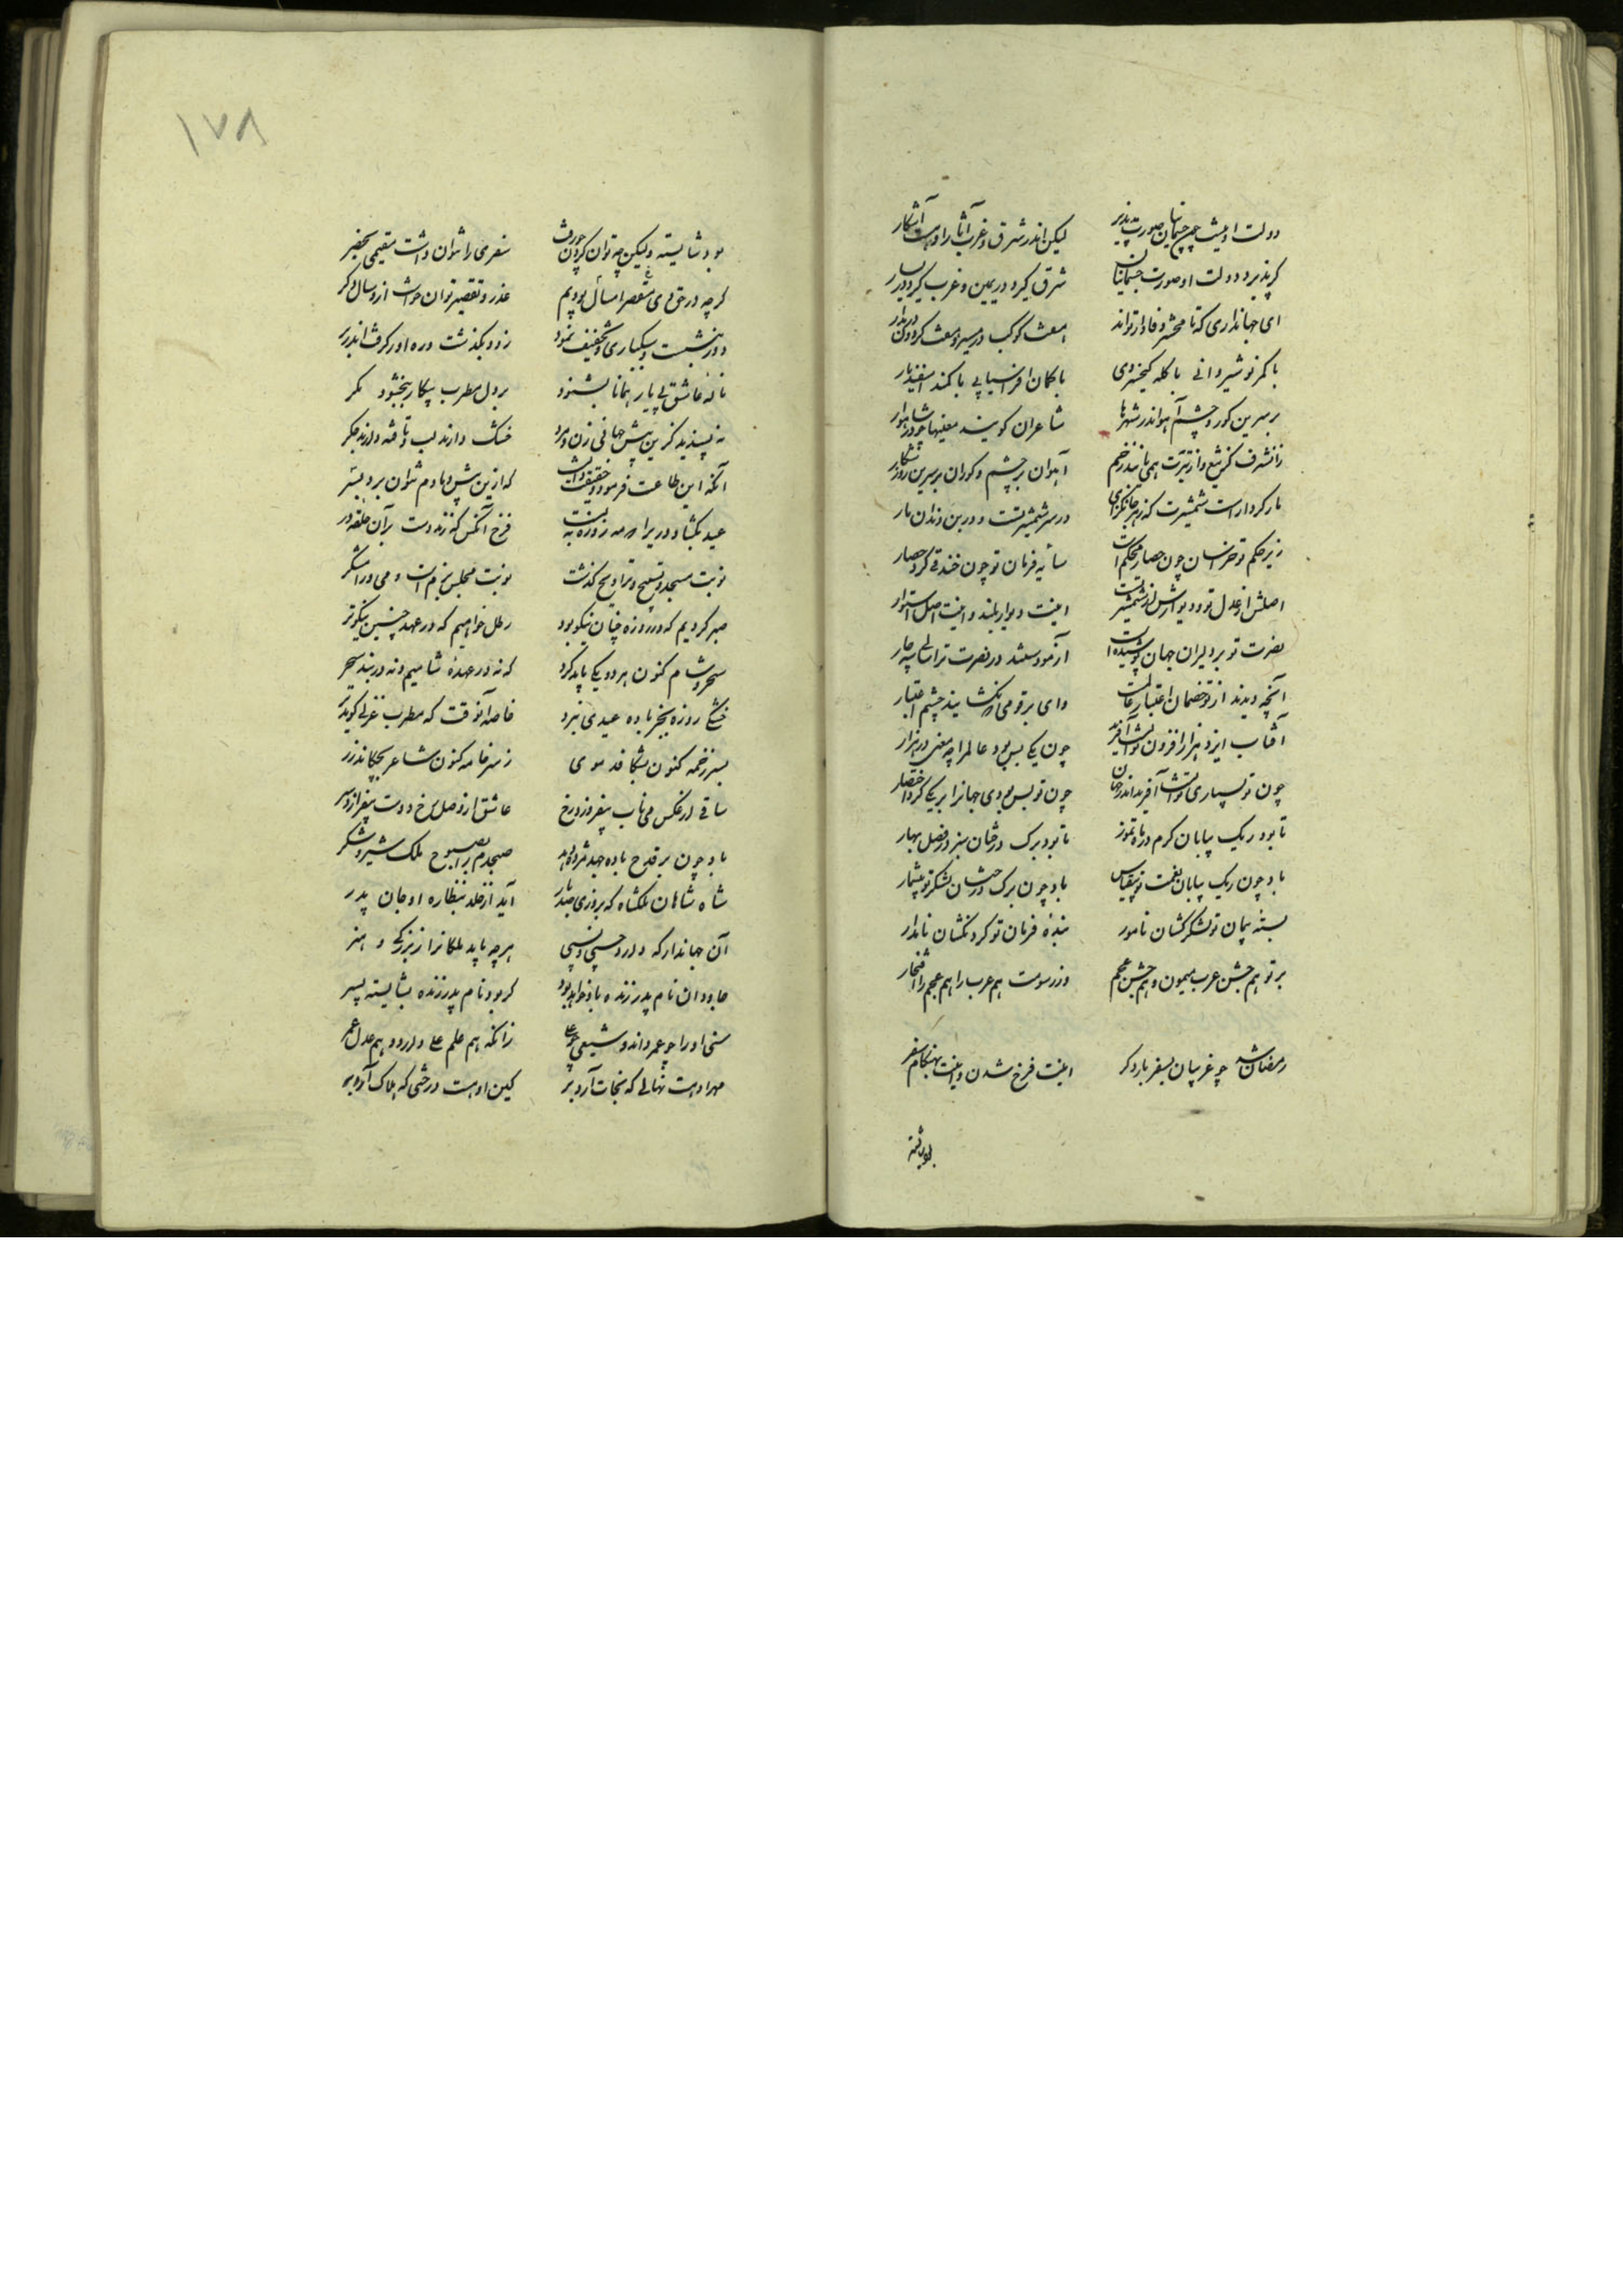 دولت او نیست چون جسمانیان صورت پذیر لیکن اندر شرق و غرب آثار او هست آشکار
گر پذیرد دولت او صورت جسمانیان شرق گیرد در یمین و غرب گیرد در یسار
ای جهانداری که تا محشر وفادار تواند
با کمر نوشیروانی با کله کیخسروی با کمان افراسیابی با کمند اسفندیار
بر سرین گور و چشم آهو اندر شهرها شاعران گویند معنیها چو در شاهوار
آهوان بر چشم و گوران بر سرین روز شکار
مار کردار است شمشیرت که زهر جانگزای در سر شمشیر تست و در بن دندان مار
زیر حکم تو خراسان چون حصار محکم است سایه فرمان تو چون خندقی گرد حصار
اصلش از عدل تو و دیوارش از شمشیر تست اینت دیوار بلند و اینت اصل استوار
نصرت تو بر دلیران جهان پوشیده است
آنچه دیدند از تو خصمان اعتبار عالمست وای بر قومی که نگشایند چشم اعتبار
آفتاب ایزد هزار افزون توانست آفرید چون یکی بس بود عالم را چه معنی در هزار
چون تو بسیاری توانست آفرید اندر جهان چون تو بس بودی جهانرا بر یکی کرد اختصار
تا بود ریک بیابان گرم در ماه تموز تا بود برک درختان سبز در فصل بهار
باد چون ریک بیابان نعمت تو بیقیاس باد چون برک درختان لشکر تو بیشمار
بسته پیمان تو لشکر کشان نامور بنده فرمان تو گردنکشان نامدار
بر تو هم جشن عرب میمون و هم جشن عجم وز رسومت هم عرب را هم عجم را افتخار
رمضان شد چو غریبان بسفر بار دگر اینت فرخ شدن و اینت بهنگام سفر
بود شایسته
۱۷۸
بود شایسته ولیکن چه توان کرد چو رفت سفری را نتوان داشت مقیمی بحضر
گرچه در حق وی امسال مقصر بودیم عذر تقصیر توان خواست ازو سال دگر
دور بنشست و سبکباری و تخفیف نمود زود بگذشت و ره دور گرفت اندر بر
ناله عاشق بی یار همانا بشنود بر دل مطرب بیکار ببخشود مگر
نه پسندید کزین بیش جهانی زن و مرد خشک دارند لب و تافته دارند جگر
آنکه این طاعت فرمود حقیقت دانست که ازین بیش دمادم نتوان برد بسر
عید بگشاد در پر اه مه روزه به بست فرخ آنکس که زند دست بر آن حلقه در
نوبت مسجد و تسبیح و تراویح گذشت نوبت مجلس بزم است و می و رامشگر
صبر کردیم که در روزه چنان نیکو بود رطل خواهیم که در عید چنین نیکوتر
سحر و شام کنون هر دو یکی باید کرد که نه در عهده شامیم و نه در بند سحر
خشکی روزه بجز باده عیدی نبرد خاصه آنوقت که مطرب غزلی گوید تر
بسر زخمه کنون بشکافد موی ز سر خامه کنون شاعر بچکاند زر
ساقی از عکس می ناب بیفروزد رخ عاشق از وصل رخ دوست بیفرازد سر
باد چون بر قدح باده جهد مژده دهد صبحدم را بصبوح ملک شیر شکر
شاه شاهان ملکشاه که هر روزی صد بار آید از خلد بنظاره او جان پدر
آن جهاندار که دارد حسبی و نسبی هر چه باید ملکانرا ز بزرگی و هنر
جاودان نام پدر زنده باو خواهد بود گر بود نام پدر زنده بشایسته پسر
سنی او را چو عمر داند و شیعی چو علی زانکه هم علم علی دارد و هم عدل عمر
مهر او هست نهالی که نجات آرد بر کین او هست درختی که هلاک آرد بر